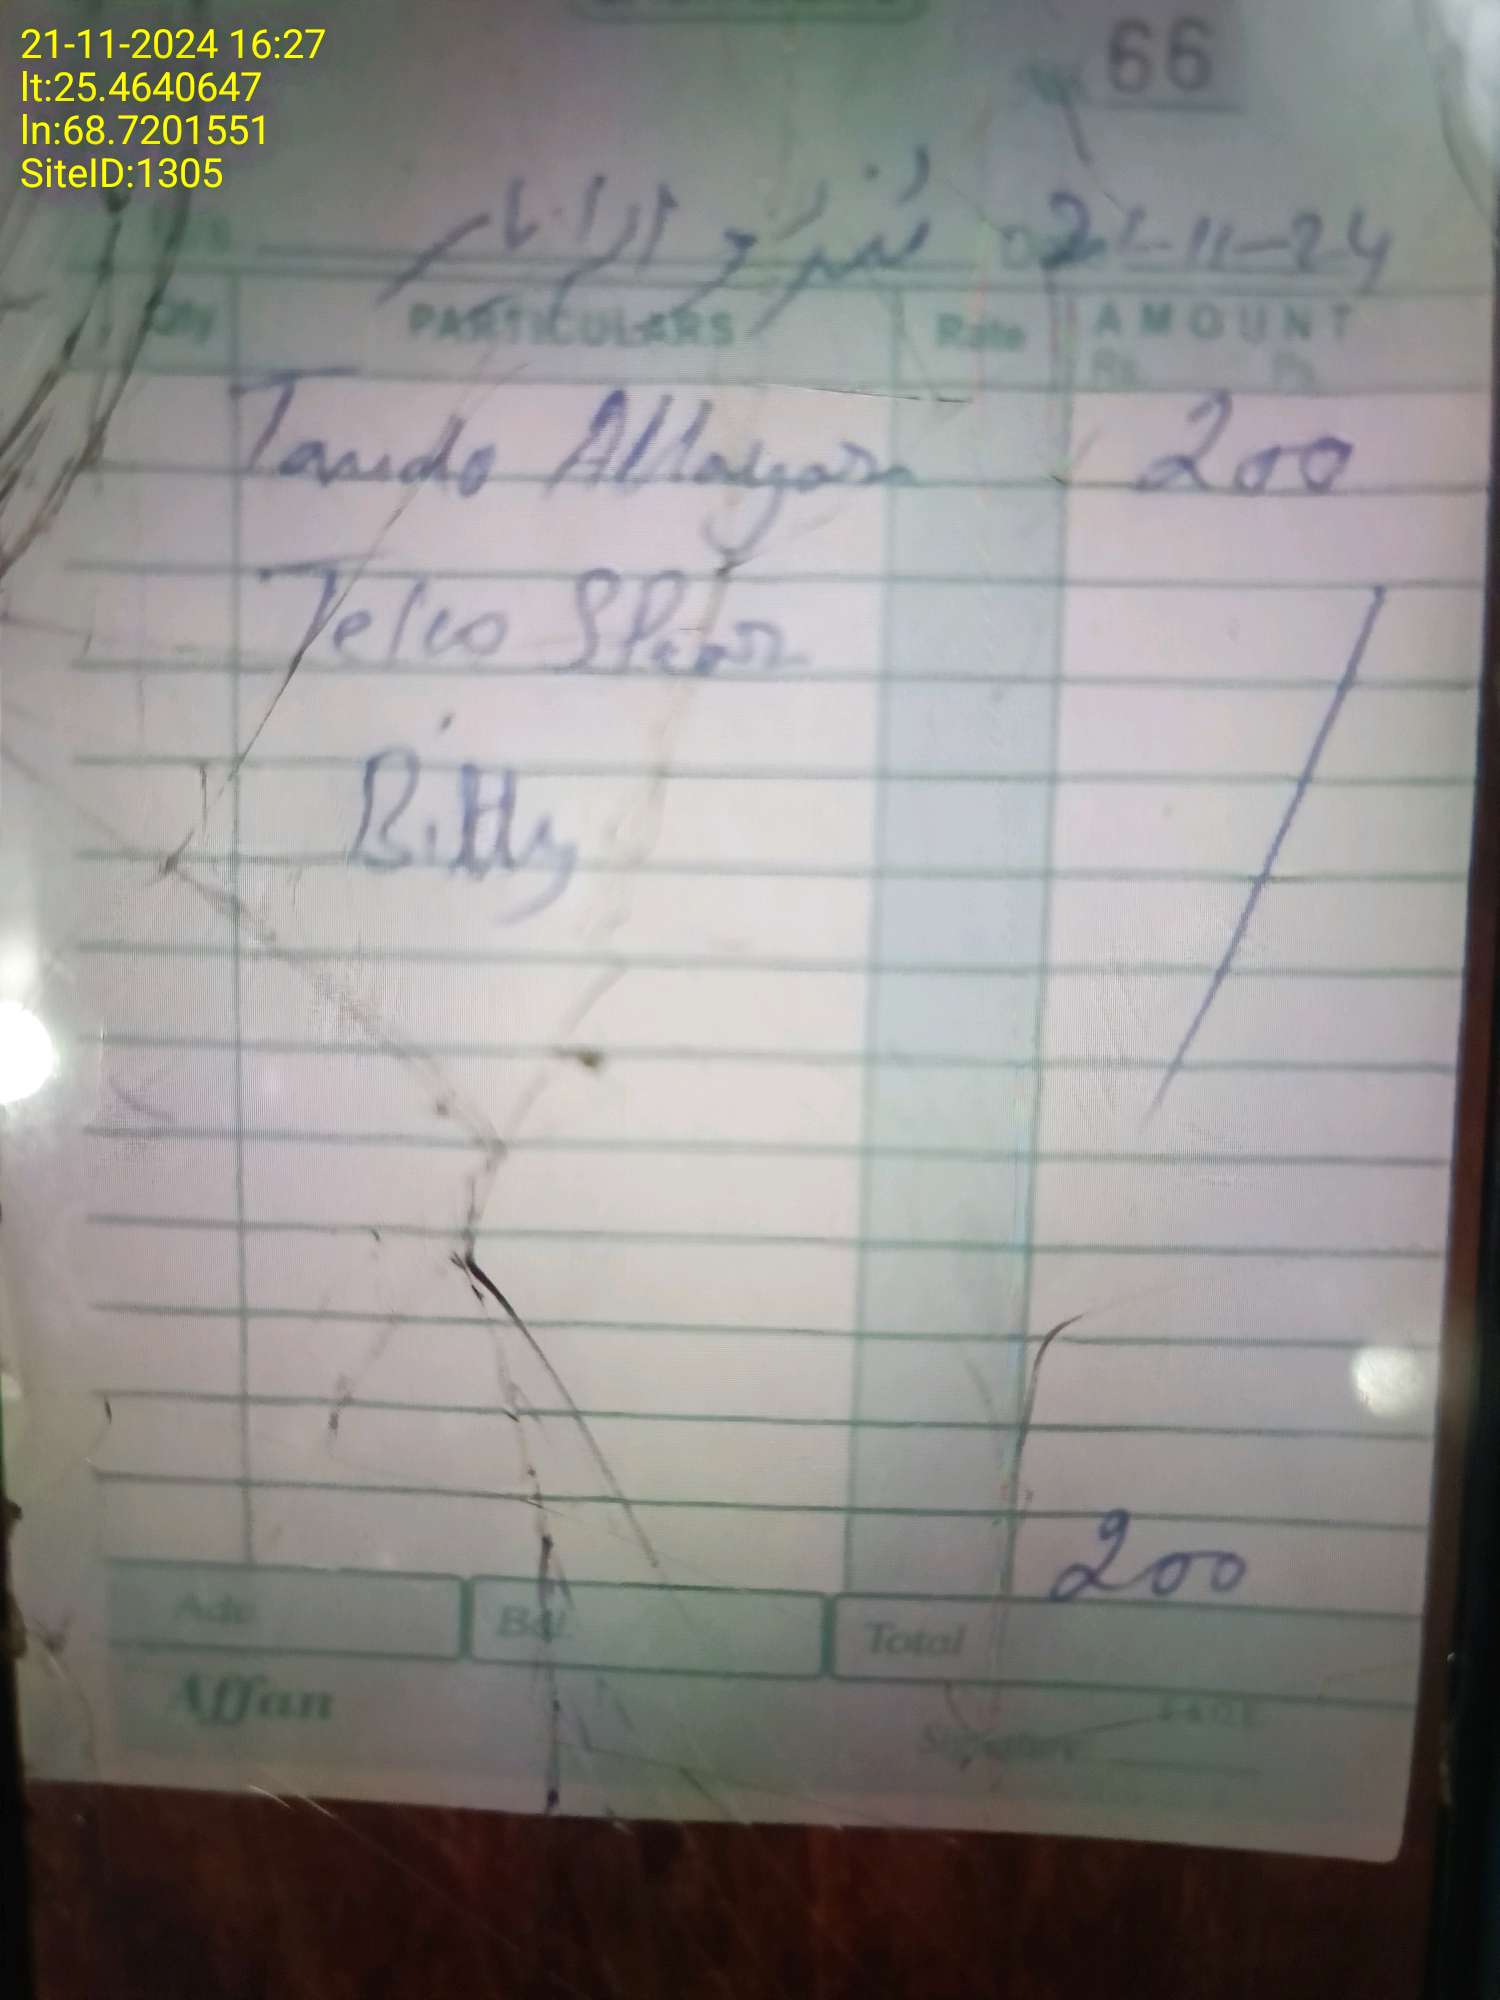 21-11-2024 16:27
lt:25.4640647
ln:68.7201551
SiteID:1305
66
21-11-24
Qty PARTICULARS Rate AMOUNT
Rs. Ps.
Tando Allahyar 200
Telco
Bilty
200
Adv. Bal. Total
Affan
Signature